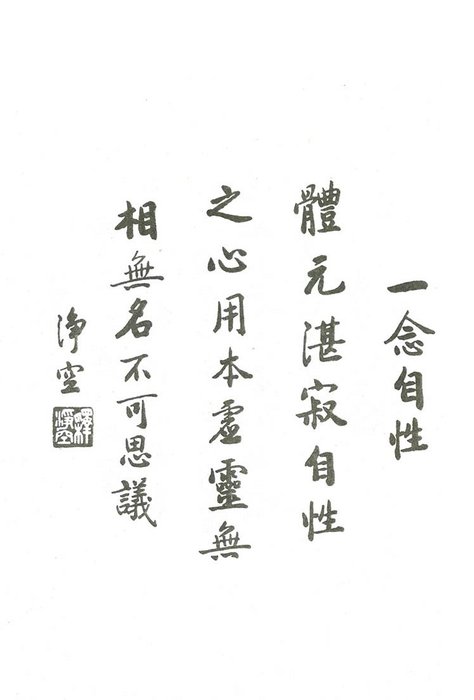 一念自性
體元湛寂自性
之心用本虛靈無
相無名不可思議
淨空
釋淨空